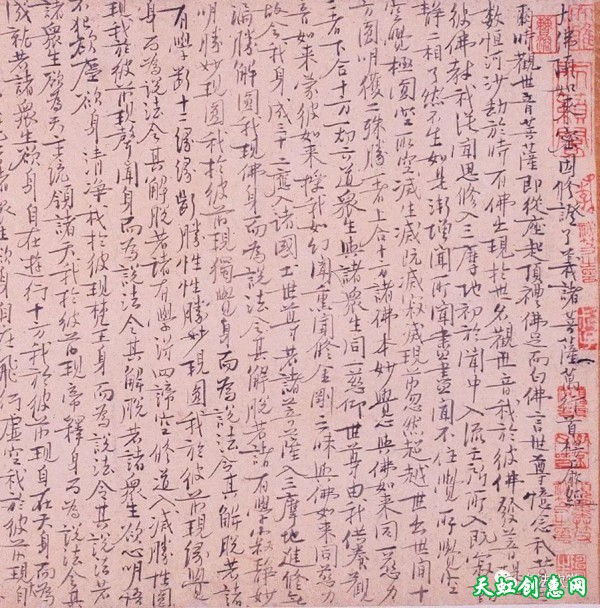 大佛頂如來密因修證了義諸菩薩萬行首楞嚴經
爾時觀世音菩薩即從座起頂禮佛足而白佛言世尊憶念我昔
數恒河沙劫於時有佛出現於世名觀世音我於彼佛發菩
彼佛教我從聞思修入三摩地初於聞中入流亡所所入既寂
靜二相了然不生如是漸增聞所聞盡盡聞不住覺所覺空
空覺極圓空所空滅生滅既滅寂滅現前忽然超越世出世間十
方圓明獲二殊勝一者上合十方諸佛本妙覺心與佛如來同一慈力
二者下合十方一切六道衆生與諸衆生同一悲仰世尊由我供養觀
音如來蒙彼如來授我如幻聞熏聞修金剛三昧與佛如來同慈力
故令我身成三十二應入諸國土世尊若諸菩薩入三摩地進修無
漏勝解現圓我現佛身而為說法令其解脫若諸有學寂靜妙
明勝妙現圓我於彼前現獨覺身而為說法令其解脫若諸
有學斷十二緣緣斷勝性勝妙現圓我於彼前現緣覺
身而為說法令其解脫若諸有學得四諦空修道入滅勝性圓
現我於彼前現聲聞身而為說法令其解脫若諸衆生欲心明悟
不犯欲塵欲身清淨我於彼前現梵王身而為說法令其解脫若
諸衆生欲為天主統領諸天我於彼前現帝釋身而為說法令其
成就若諸衆生欲身自在遊行十方我於彼前現自在天身而為
衆生欲身自在飛行虛空我於彼前現
天虹创意网